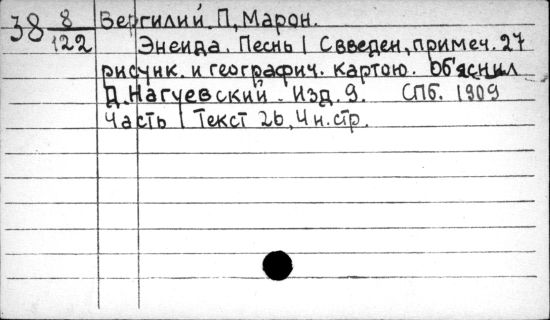 38 8/122 Вергилий. П, Марон.
Энеида. Песнь I Свведен, примеч. 27
рисунк. и географич. картою. Об'яснил
Д. Нагуевский. Изд. 9. СПб. 1909
Часть I Текст 26, 4 н. стр.